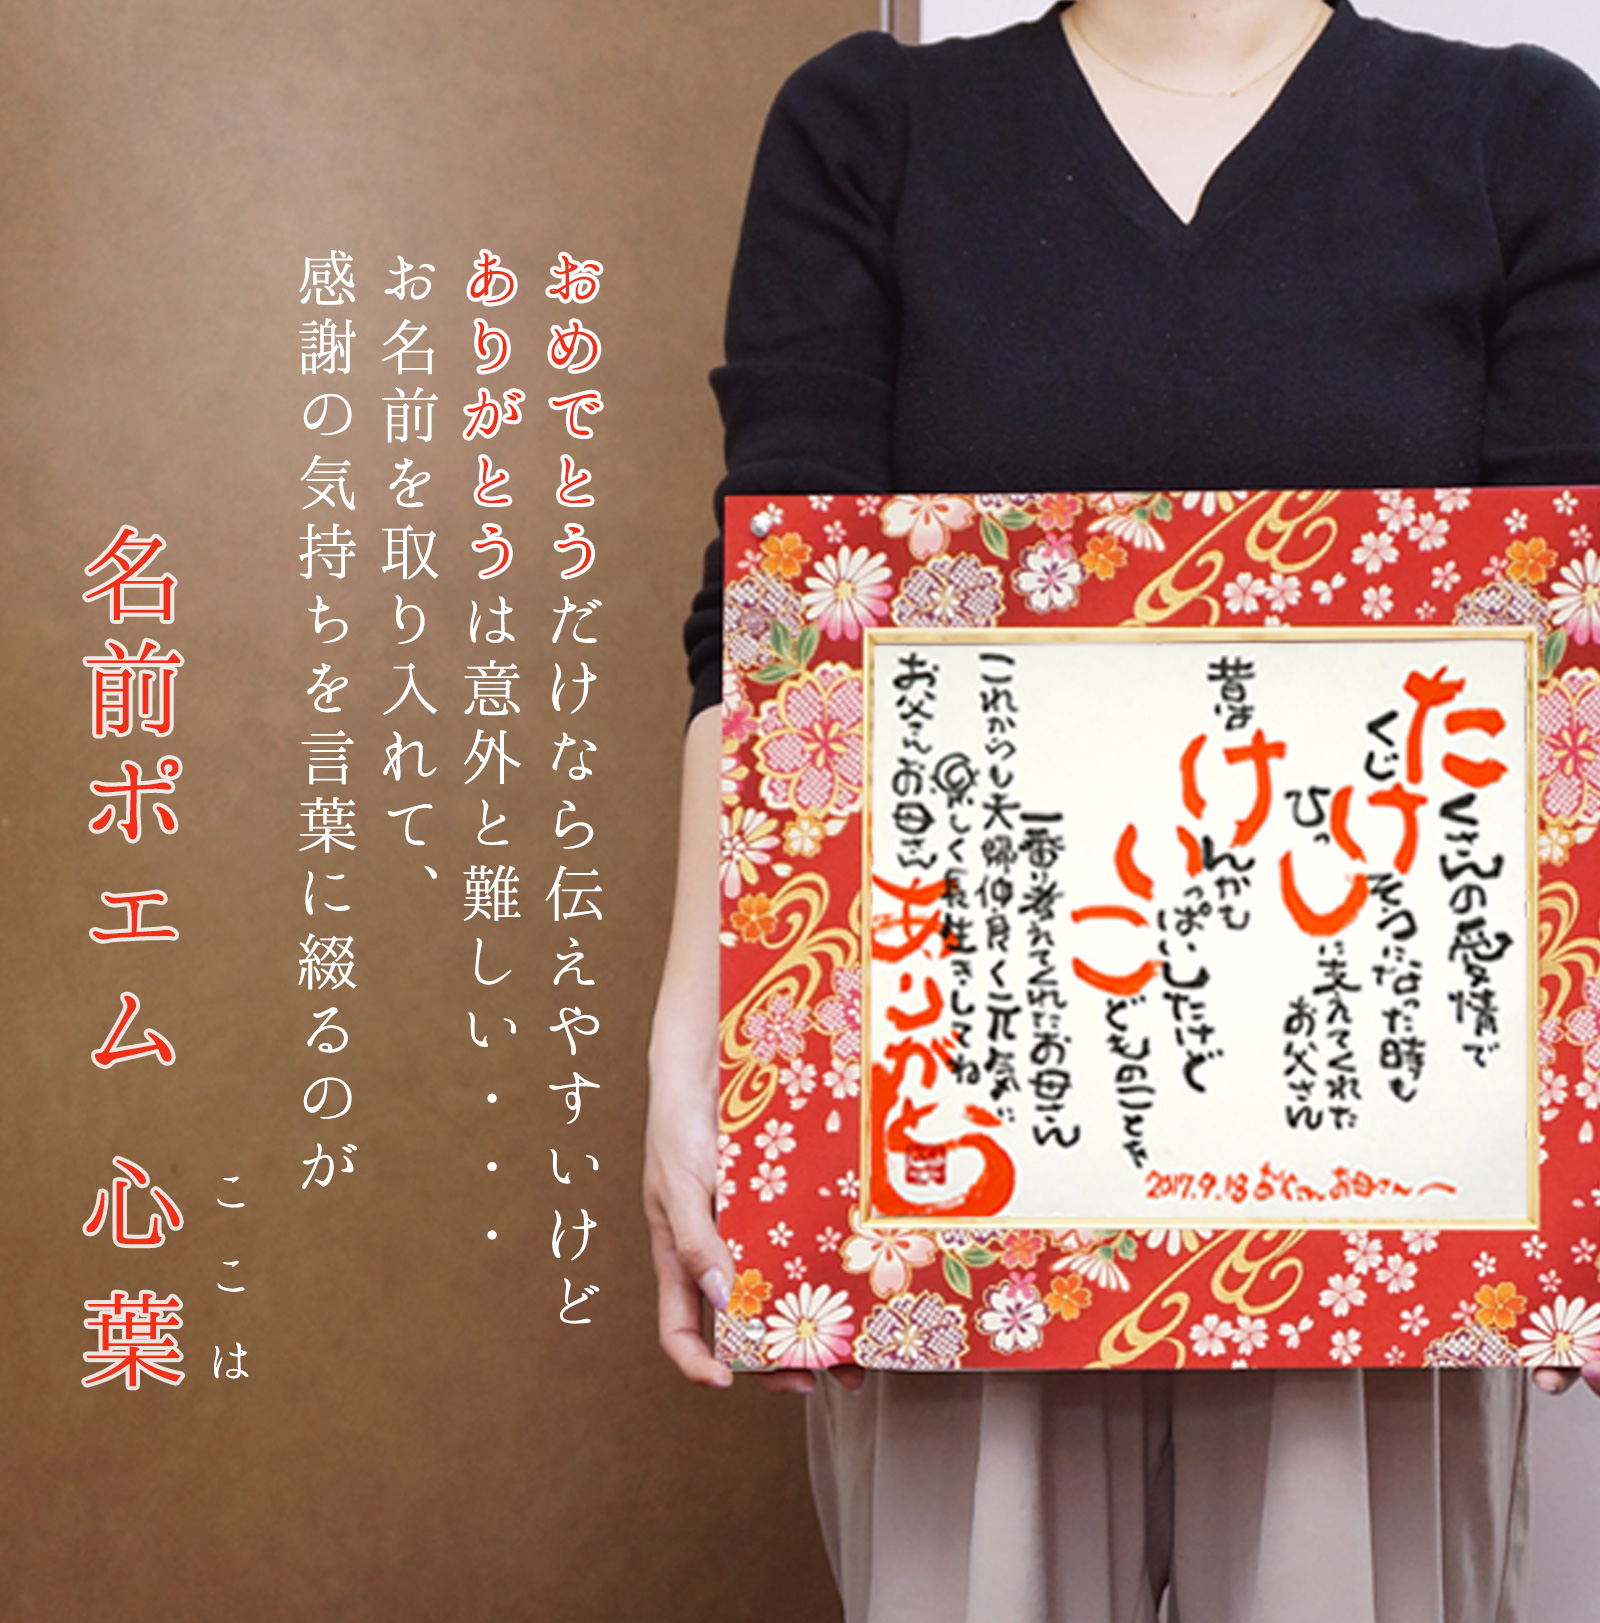 おめでとうだけなら伝えやすいけど
ありがとうは意外と難しい・・・
お名前を取り入れて、
感謝の気持ちを言葉に綴るのが
名前ポエム 心葉
ここは
たくさんの愛情で
くじけそうになった時も
ひっしに支えてくれた
お父さん
昔はけんかも
いっぱいしたけど
いつもこどものことを
一番に考えてくれたお母さん
これからも夫婦仲良く元気に
楽しく長生きしてね
お父さんお母さん
ありがとう
2017.9.18 お父さんお母さんへ